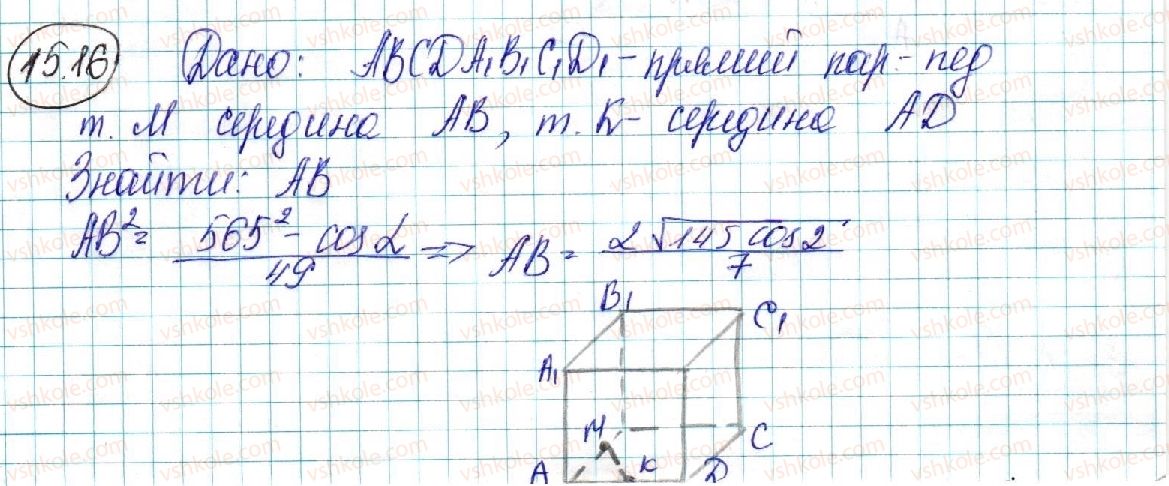 15.16 Дано: ABCDA₁B₁C₁D₁ - прямий пар-пед
т. М середина AB, т. К - середина AD
Знайти: AB
AB² = (565² - cos α)/49 => AB = (2√(145 cos 2))/7
B₁
C₁
A₁
M
C
A
K
D
vshkole.com